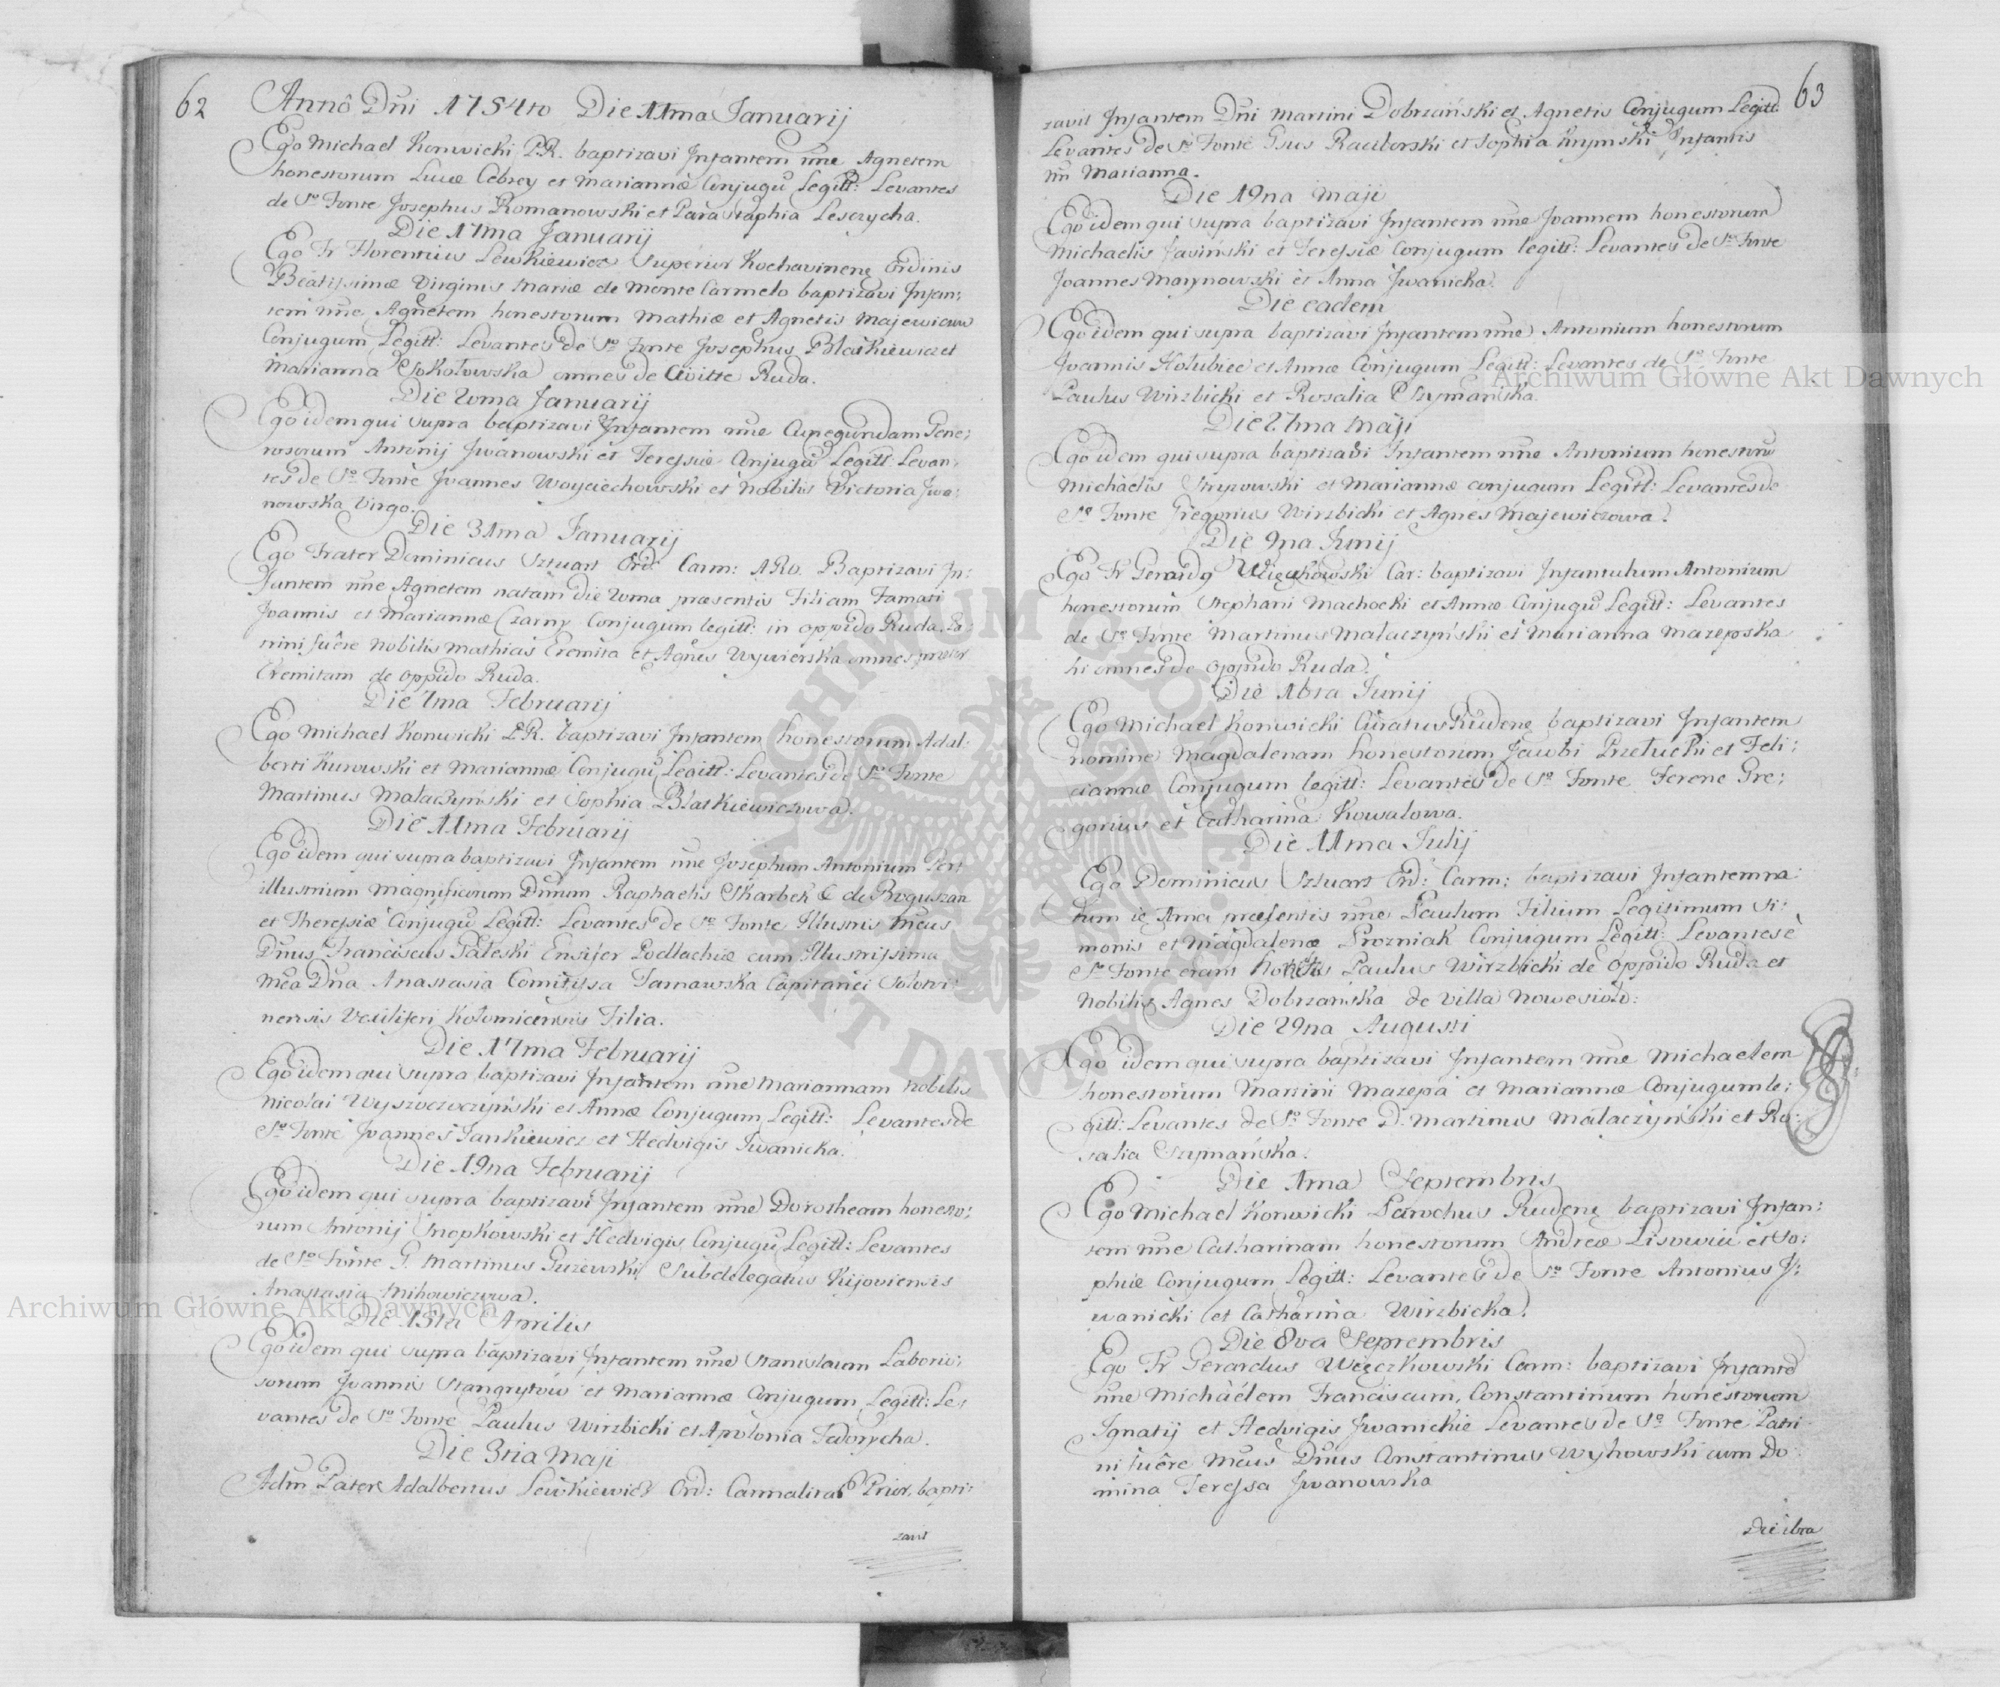 62
Annô Dni 1754to Die 11ma Januarij
Ego Michael Konwicki P.R. baptizavi Infantem nne Agnetem
honestorum Lucæ Cebrey et Mariannæ Conjugũ Legitt: Levantes
de So Fonte Josephus Romanowski et Paraskaphia Lesczycha.
Die 17ma Januarij
Ego Fr Florentius Lewkiewicz Superior Kochavinenę Ordinis
Beatissimæ Virginis Mariæ de Monte Carmelo baptizavi Infan:
tem nne Agnetem honestorum Mathiæ et Agnetis Majewicow
Conjugum Legitt: Levantes de So Fonte Josephus Blatkiewicz et
Marianna Sokołowska omnes de Civitte Ruda.
Die 20ma Januarij
Ego idem qui supra baptizavi Infantem nne Cunegundam Gene:
rosorum Antonij Jwanowski et Teressiæ Conjugũ Legitt: Levan:
tes de So Fonte Joannes Woyciechowski et Nobilis Victoria Jwa:
nowska Virgo.
Die 31ma Januarij
Ego Frater Dominicus Sztuart Ord: Carm: ARo. Baptizavi In:
fantem nne Agnetem natam die 20ma præsentis Filiam Famati
Joannis et Mariannæ Czarny Conjugum legitt: in oppido Ruda. Pa:
trini fuêre Nobilis Mathias Eremita et Agnes Wywierska omnes præter
Eremitam de oppido Ruda.
Die 7ma Februarij
Ego Michael Konwicki P.R. baptizavi Infantem honestorum Adal:
berti Kurowski et Mariannæ Conjugũ Legitt: Levantes de So Fonte
Martinus Małaczyński et Sophia Blatkiewiczowa.
Die 11ma Februarij
Ego idem qui supra baptizavi Infantem nne Josephum Antonium Per
illustrium Magnificorum Dnum Raphaelis Skarbek C de Boguszan
et Theressiæ Conjugũ Legitt: Levantes de So Fonte Illustris Meus
Dnus Franciscus Paleski Ensifer Podlachiæ cum Illustrissima
Mea Dna Anastasia Comitissa Tarnawska Capitanei Solotwi:
nensis Vexiliferi Kołomicensis Filia.
Die 17ma Februarij
Ego idem qui supra baptizavi Infantem nne Mariannam Nobilis
Nicolai Wyszoczoczyński et Annæ Conjugum Legitt: Levantes de
So Fonte Joannes Jankiewicz et Hedvigis Jwanicka.
Die 19na Februarij
Ego idem qui supra baptizavi Infantem nne Dorotheam honesto:
rum Antonij Snopkowski et Hedvigis Conjugũ Legitt: Levantes
de So Fonte G. Martinus Guzewski Subdelegatus Kijoviensis
Anastasia Mihowiczowa.
Die 15ta Aprilis
Ego idem qui supra baptizavi Infantem nne Stanislaum Laborio:
sorum Joannis Stangrytów et Mariannæ Conjugum Legitt: Le:
vantes de So Fonte Paulus Wirzbicki et Apolonia Fedorycha.
Die 3tia Maji
Adm Pater Adalbertus Lewkiewicz Ord: Carmelitar Prior, bapti:
zavit
63
zavit Infantem Dni Martini Dobrzański et Agnetis Conjugum Legitt:
Levantes de So Fonte Gsus Raciborski et Sophia Krymski Infantis
nn Marianna.
Die 19na Maji
Ego idem qui supra baptizavi Infantem nne Joannem honestorum
Michaelis Jasiński et Teressiæ Conjugum legitt: Levantes de So Fonte
Joannes Marynowski et Anna Jwanicka.
Die eadem
Ego idem qui supra baptizavi Infantem nne Antonium honestorum
Joannis Hołubiec et Annæ Conjugum Legitt: Levantes de So Fonte
Paulus Wirzbicki et Rosalia Szymańska.
Die 27ma Maji
Ego idem qui supra baptizavi Infantem nne Antonium honestorũ
Michaelis Stryowski et Mariannæ conjugum Legitt: Levantes de
So Fonte Gregorius Wirzbicki et Agnes Majewiczowa.
Die 9na Junij
Ego Fr Gerardg Więczkowski Car: baptizavi Infantulum Antonium
honestorum Stephani Machocki et Annæ Conjugũ Legitt: Levantes
de So Fonte Martinus Małaczyński et Marianna Mazepska
hi omnes de oppido Ruda.
Die 16ta Junij
Ego Michael Konwicki Curatus Rudenę baptizavi Infantem
nomine Magdalenam honestorum Jacobi Przełucki et Feli:
ciannæ Conjugum legitt: Levantes de So Fonte Ferenc Gre:
gorius et Catharina Kowalowa.
Die 11ma Julij
Ego Dominicus Sztuart Ord: Carm: baptizavi Infantem na:
tum ie 7ma præsentis nne Paulum Filium Legitimum Si:
monis et Magdalenæ Prozniak Conjugum Legitt: Levantes è
So Fonte erant Paulus Wirzbicki de oppido Ruda et
Nobilis Agnes Dobrzańska de villa Nowesioło:
Die 29na Augusti
Ego idem qui supra baptizavi Infantem nne Michaelem
honestorum Martini Mazepa et Mariannæ Conjugum le:
gitt: Levantes de So Fonte D. Martinus Małaczyński et Ro:
salia Szymańska.
Die 1ma Septembris
Ego Michael Konwicki Parochus Rudenę baptizavi Infan:
tem nne Catharinam honestorum Andreæ Lisowicz et So:
phiæ Conjugum Legitt: Levantes de So Fonte Antonius J:
wanicki et Catharina Wirzbicka.
Die 8va Septembris
Ego Fr Gerardus Więczkowski Carm: baptizavi Infantẽ
nne Michäelem Franciscum, Constantinum honestorum
Ignatij et Hedvigis Jwanickie Levantes de So Fonte Patri
ni fuêre Meus Dnus Constantinus Wyhowski cum Do
mina Teressa Jwanowska
Die
Archiwum Główne Akt Dawnych
Archiwum Główne Akt Dawnych
ARCHIWUM GŁÓWNE AKT DAWNYCH